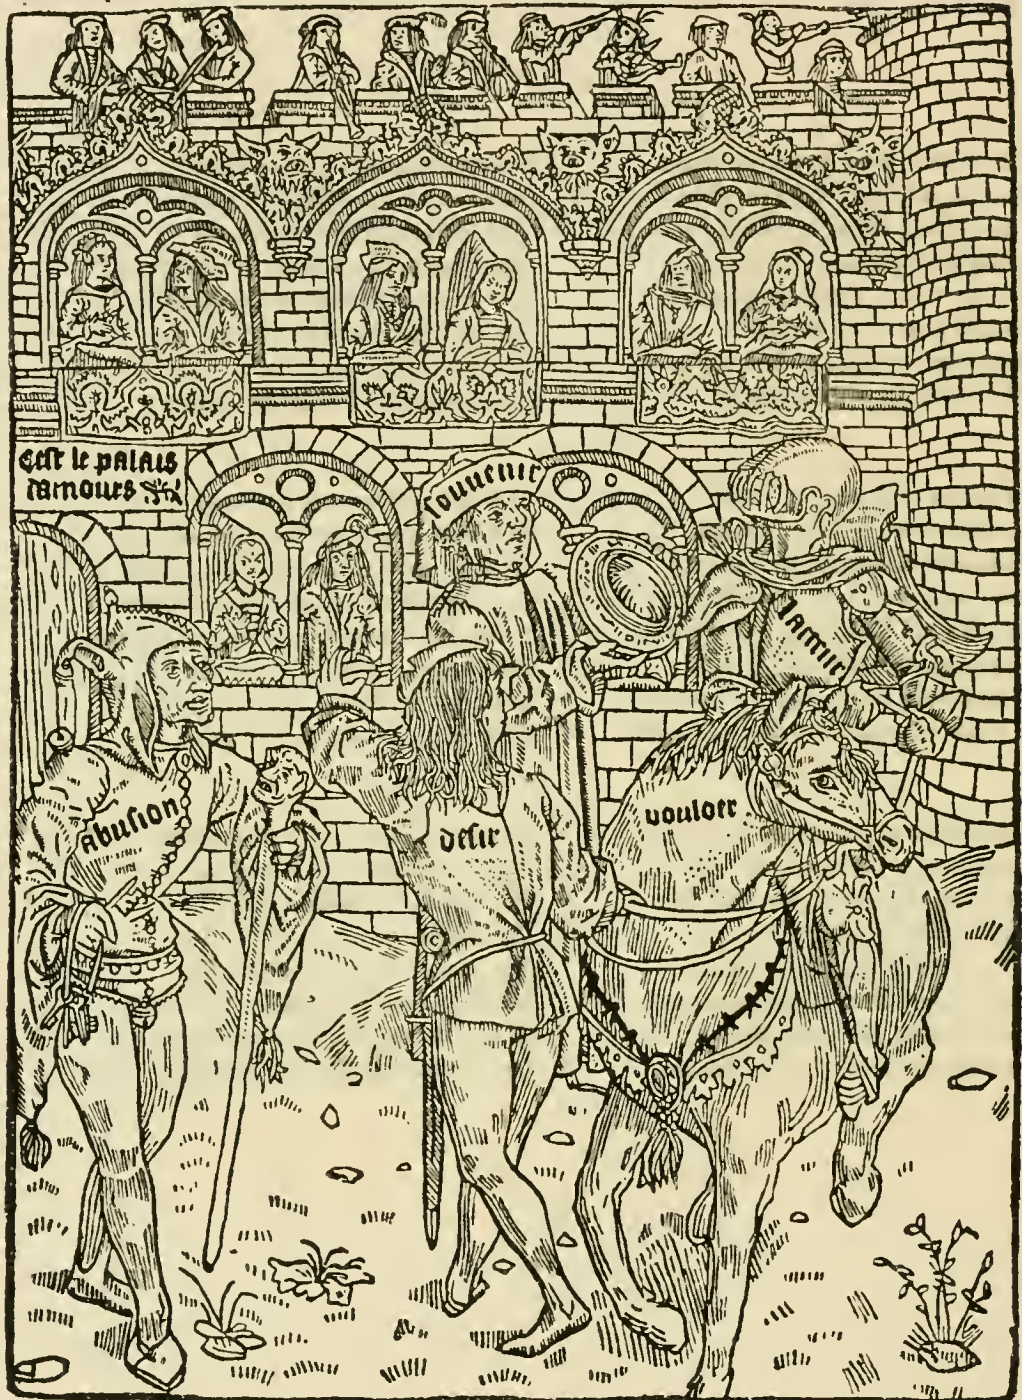 Cest le palais
damours
souuenir
abusion
desir
vouloer